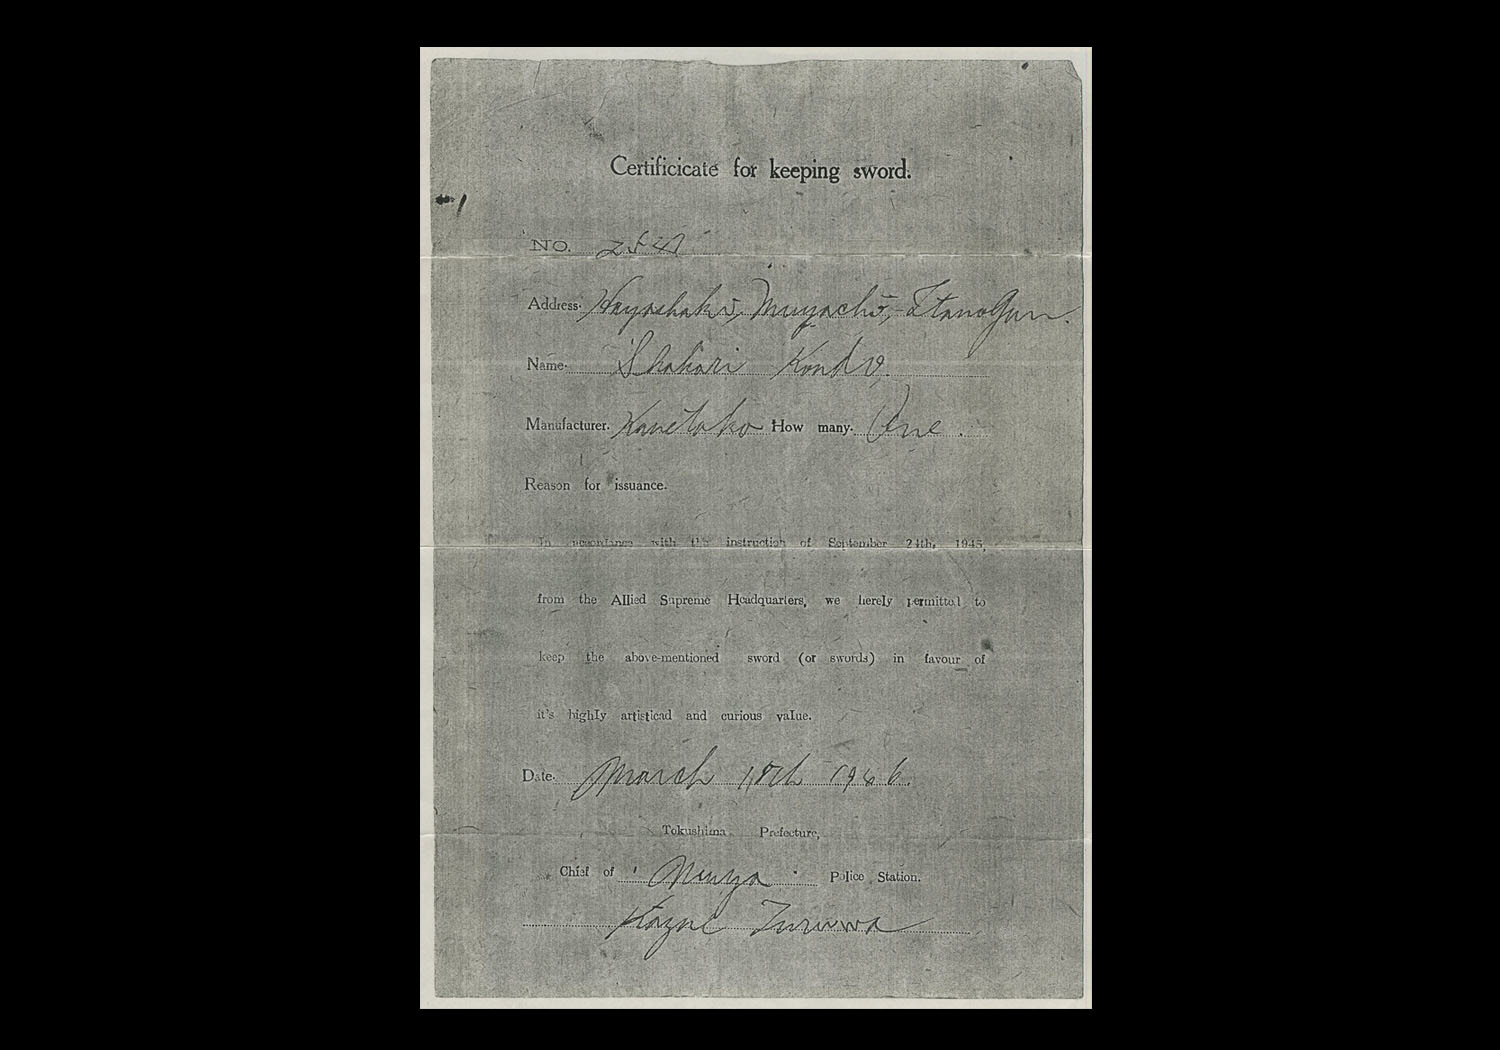 Certificicate for keeping sword.
NO.
Address. Hayashaki, Muyachō, Itano Gun.
Name. Kondo.
Manufacturer. How many. One.
Reason for issuance.
In accordance with the instruction of September 24th, 1945,
from the Allied Supreme Headquarters, we herely permitted to
keep the above-mentioned sword (or swords) in favour of
it's highly artisticad and curious value.
Date. March 18th 1946.
Tokushima Prefecture,
Chief of Muya Police Station.